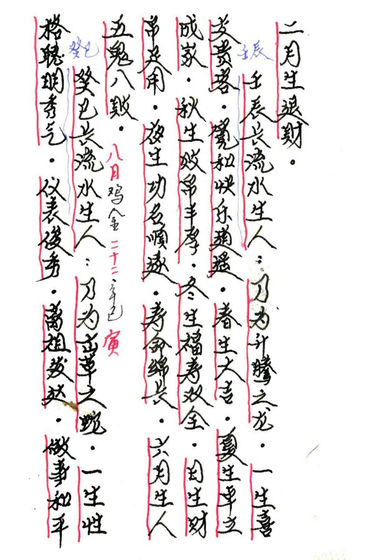 二月生退财。
壬辰
壬辰长流水生人：乃为行腾之龙。一生喜
交贵客。宽和快乐逍遥。春生大吉。夏生卓立
成家。秋生破吊丰厚。冬生福寿双全。日生财
帛足用。夜生功名顺遂。寿命绵长。六月生人
五鬼八败。
八月鸡金二十二 辛巳 寅
癸巳
癸巳长流水生人：乃为 草之蛇。一生性
格聪明秀气。仪表俊秀。离祖发达。做事和平